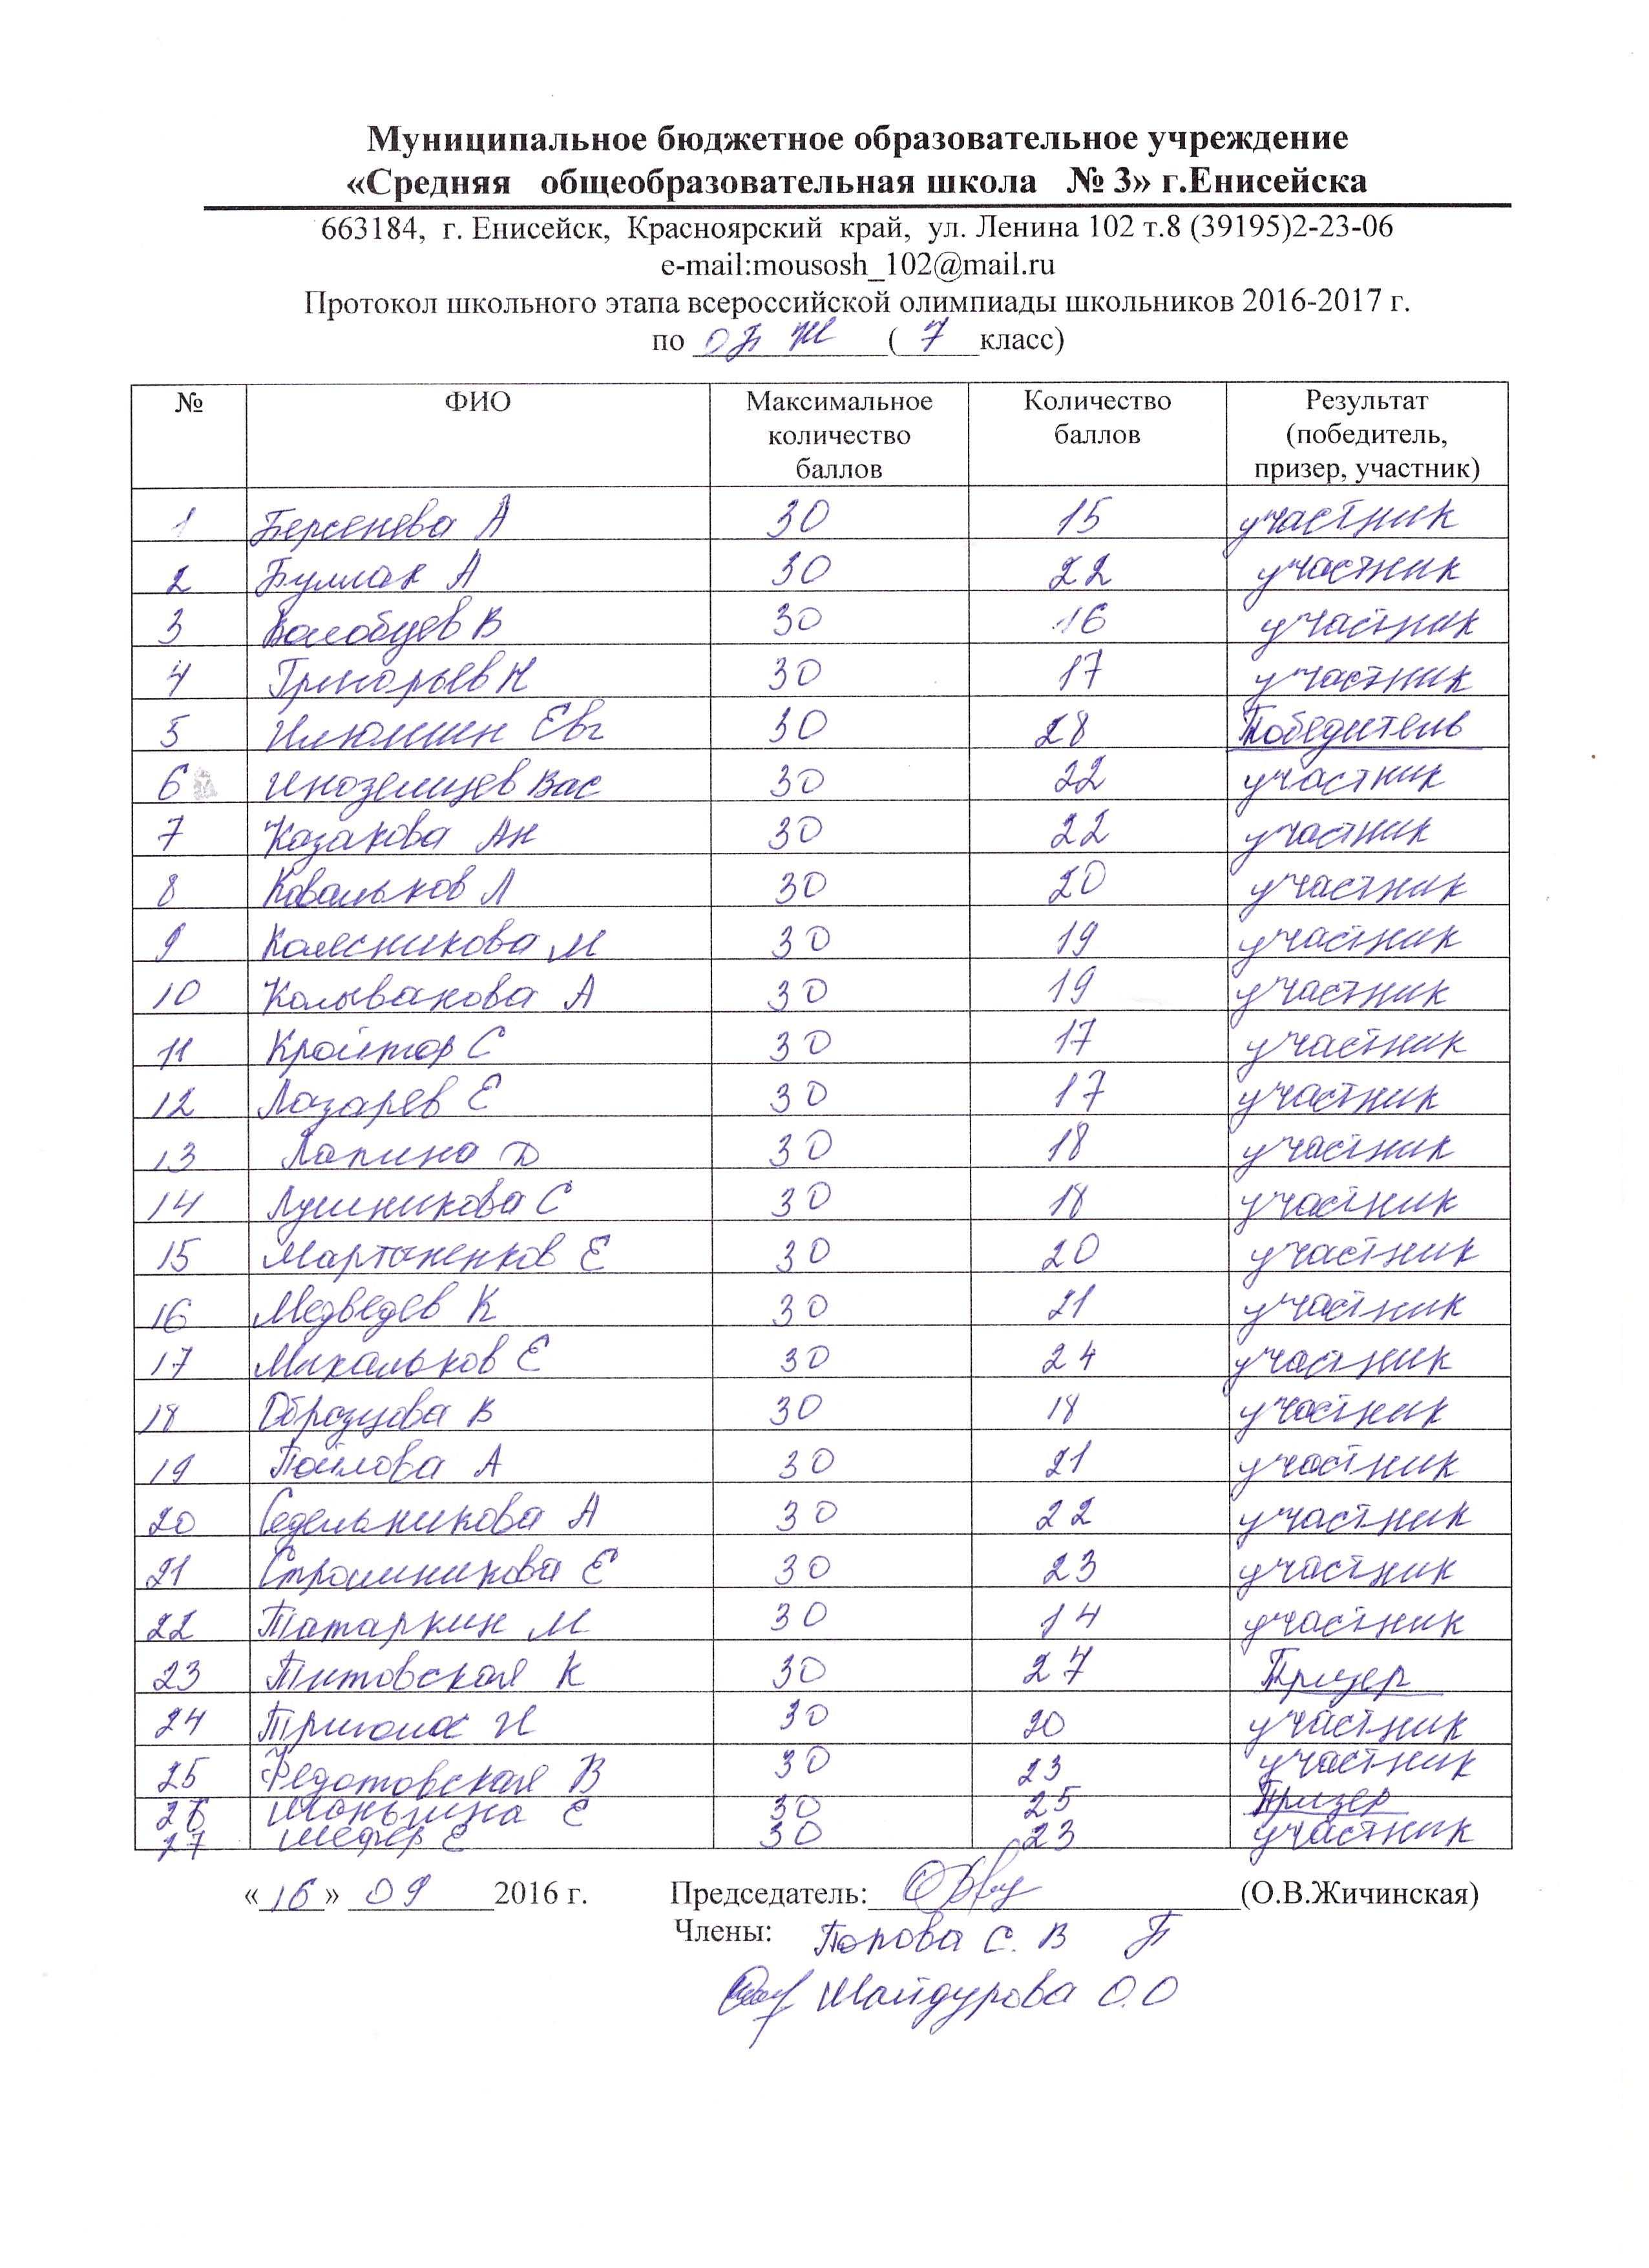 Муниципальное бюджетное образовательное учреждение
«Средняя общеобразовательная школа № 3» г.Енисейска
663184, г. Енисейск, Красноярский край, ул. Ленина 102 т.8 (39195)2-23-06
e-mail:mousosh_102@mail.ru
Протокол школьного этапа всероссийской олимпиады школьников 2016-2017 г.
по ОБЖ ( 7 класс)
№ ФИО Максимальное количество баллов Количество баллов Результат (победитель, призер, участник)
1 Берсенева А 30 15 участник
2 Буллах А 30 22 участник
3 Волобуев В 30 16 участник
4 Григорьев Н 30 17 участник
5 Илюшин Евг 30 28 Победитель
6 Иноземцев Вас 30 22 участник
7 Казакова Ан 30 22 участник
8 Ковальков Л 30 20 участник
9 Колесникова М 30 19 участник
10 Колыванова А 30 19 участник
11 Кройтор С 30 17 участник
12 Лазарев Е 30 17 участник
13 Лапина Д 30 18 участник
14 Лушникова С 30 18 участник
15 Мартыненков Е 30 20 участник
16 Медведев К 30 21 участник
17 Михальков Е 30 24 участник
18 Образцова В 30 18 участник
19 Пойлова А 30 21 участник
20 Седельникова А 30 22 участник
21 Стромникова Е 30 23 участник
22 Татаркин М 30 14 участник
23 Титовская К 30 27 Призер
24 И 30 20 участник
25 Федотовская В 30 23 участник
26 Е 30 25 Призер
27 Шефер Е 30 23 участник
«16» 09 2016 г. Председатель: (О.В.Жичинская)
Члены: Попова С. В П
Шайдурова О.О